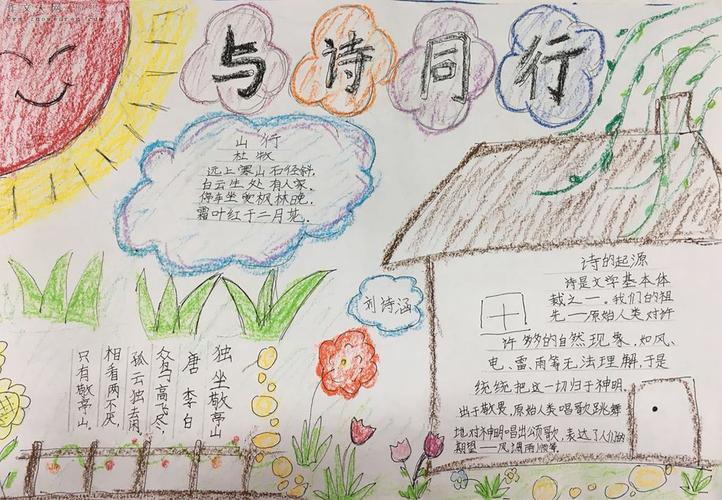 与诗同行
山行
杜牧
远上寒山石径斜,
白云生处有人家,
停车坐爱枫林晚,
霜叶红于二月花.
刘诗涵
独坐敬亭山
唐 李白
众鸟高飞尽,
孤云独去闲。
相看两不厌,
只有敬亭山。
诗的起源
诗是文学基本体
裁之一。我们的祖
先——原始人类对许
许多的自然现象,如风、
电、雷、雨等无法理解,于是
统统把这一切归于神明。
出于敬畏,原始人类唱歌跳舞
地对神明唱出颂歌,表达了人们的
期望——风调雨顺等